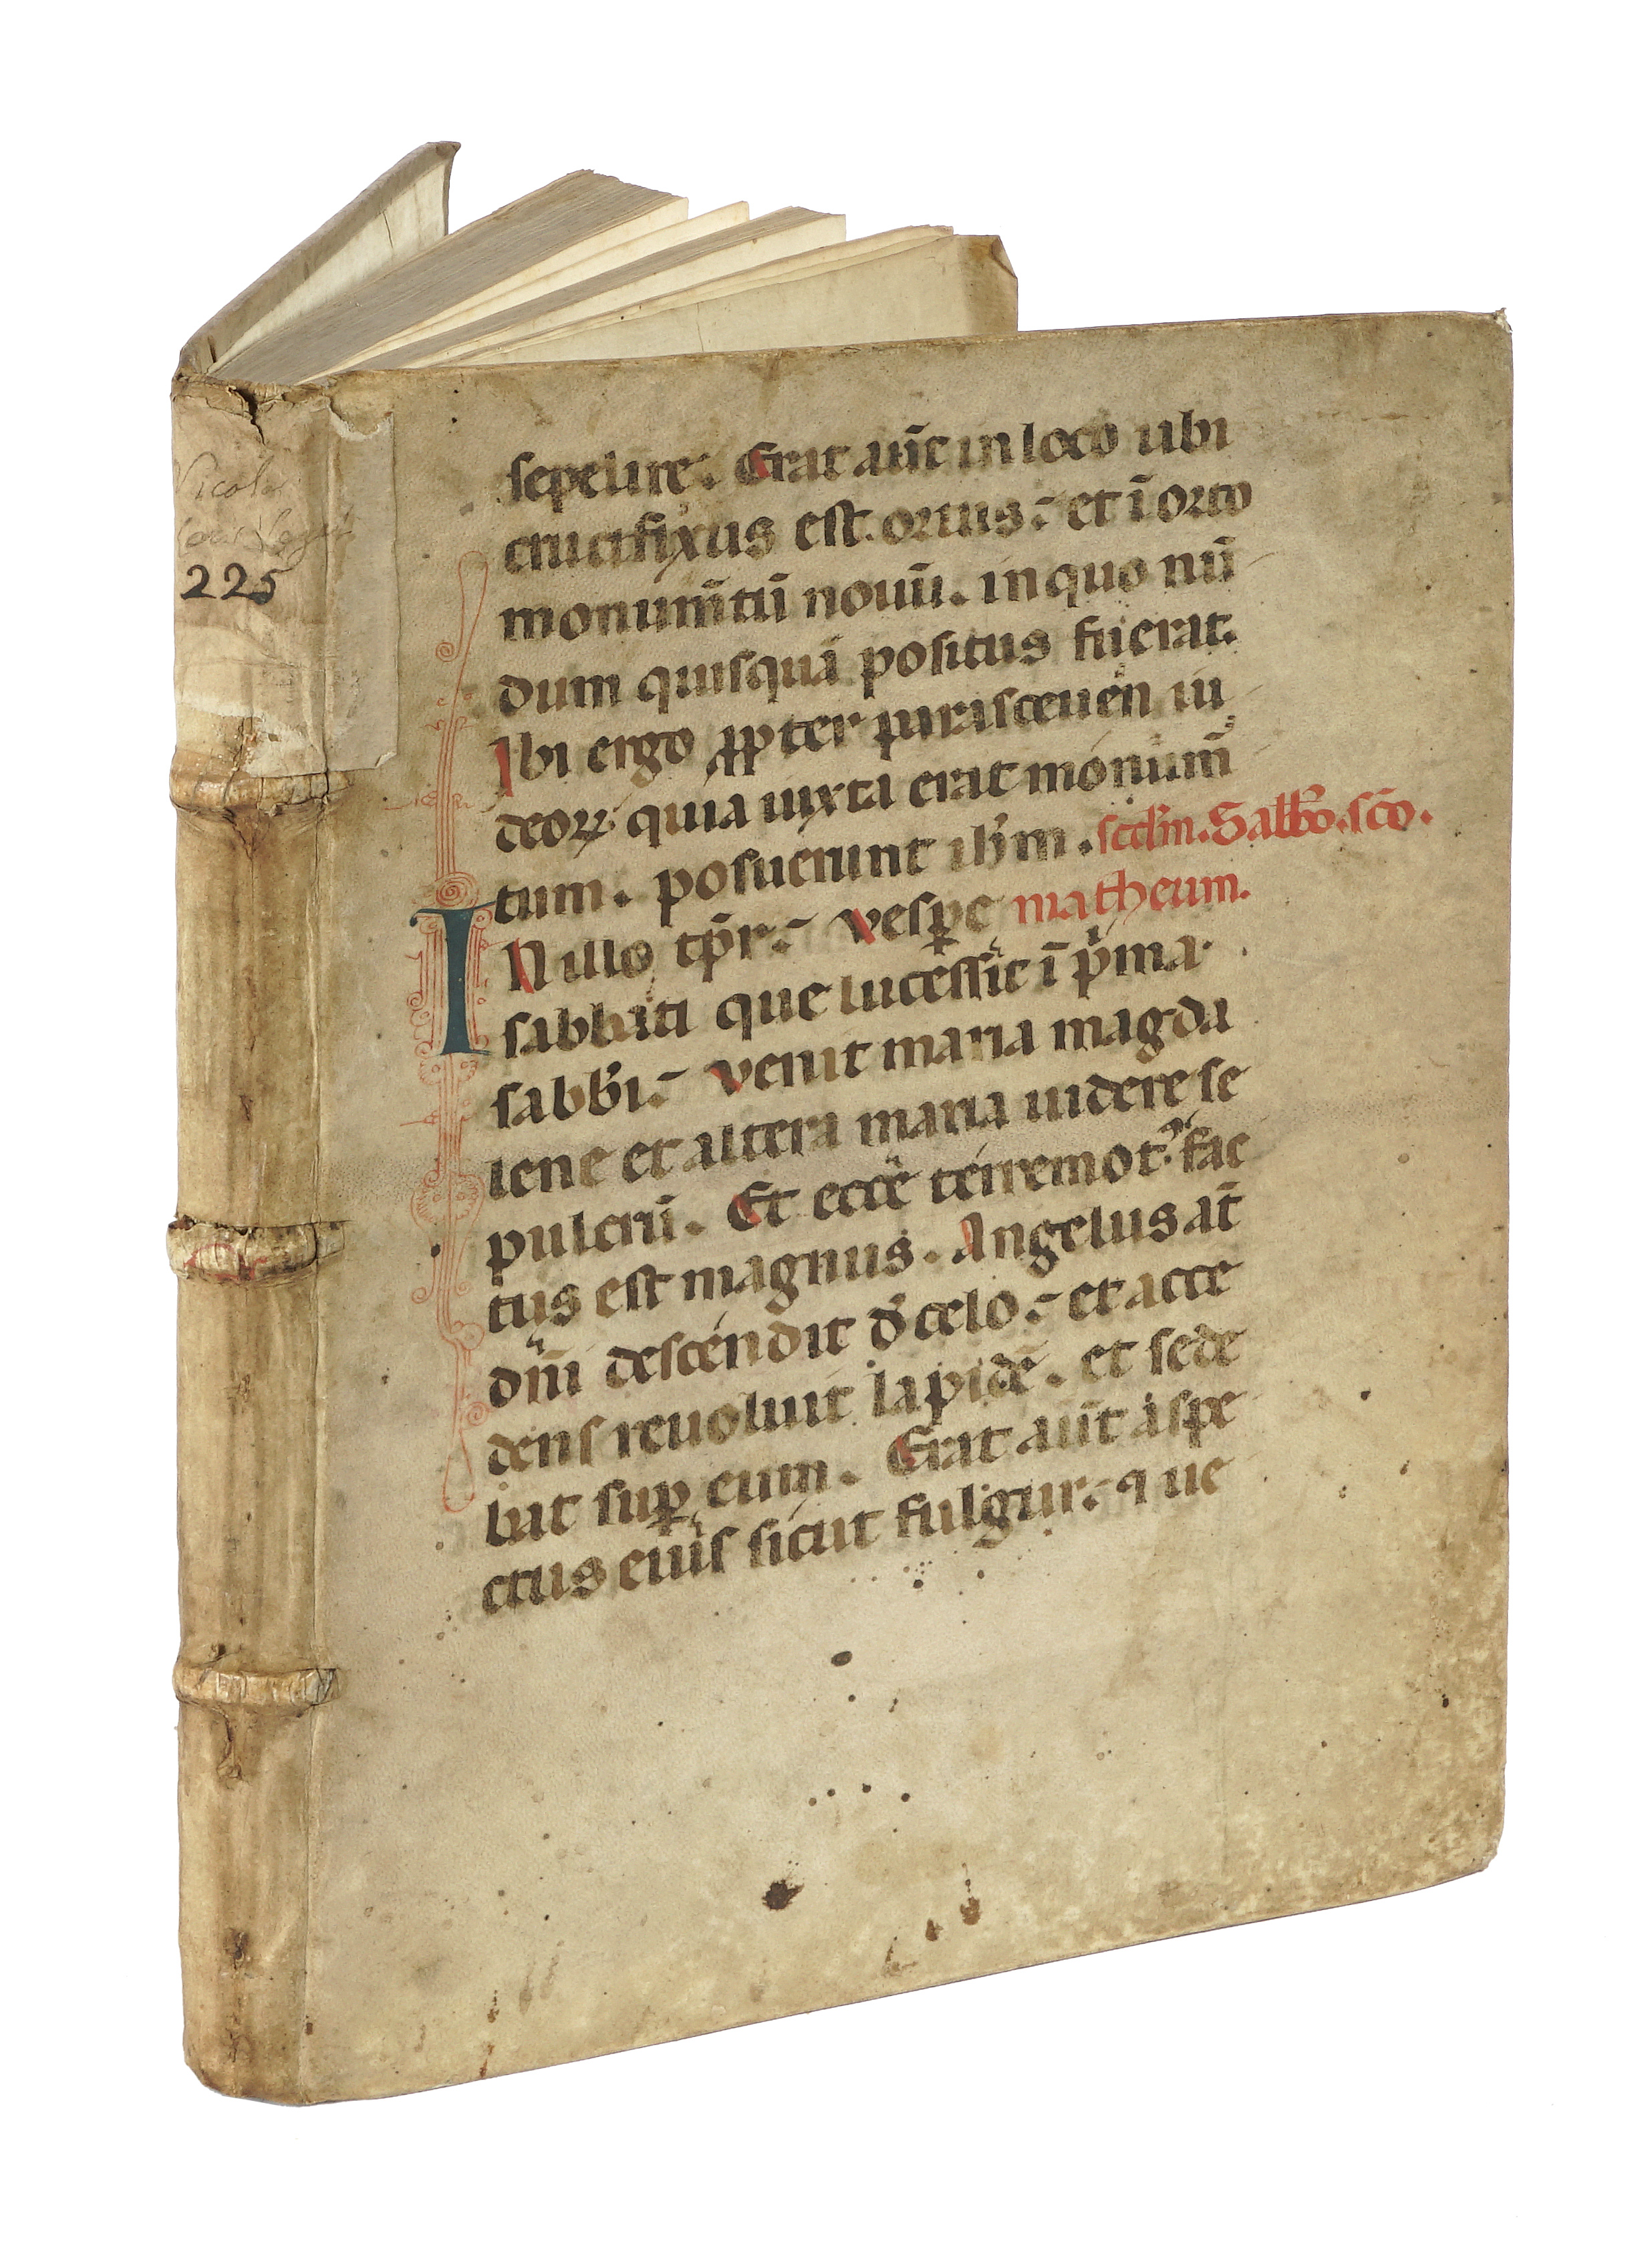 Nicola
225
sepelire. Erat aūt in loco ubi
crucifixus est. ortus: et ī orto
monum̄tū nouū. in quo nū
dum quisquā positus fuerat.
Ibi ergo ꝓpter parasceuen iu
deoꝝ quia iuxta erat monum̄
tum. posuerunt ihm̄. scd̄m. Sabb̄o. sc̄o.
IN illo tp̄r: Vesꝑe matheum.
sabbati que lucessit ī pima
sabb̄i: venit maria magda
lene et altera maria uidere se
pulcrū. Et ecce terremotꝰ fac
tus est magnus. Angelus aūt
dn̄i descendit d̄ celo: et acce
dens reuoluit lapidē. et sede
bat suꝑ eum. Erat aūt aspe
ctus eius sicut fulgur: que